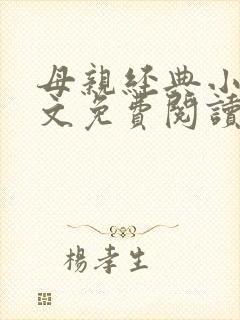 母親經典小
文免費閱讀
楊孝生